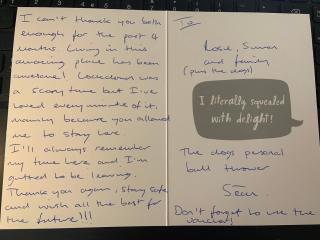 I can't thank you both
enough for the past 4
months. Living in this
amazing place has been
awesome!. Lockdown was
a scary time but I've
loved every minute of it,
mainly because you allowed
me to stay here.
I'll always remember
my time here and I'm
gutted to be leaving.
Thank you again, stay safe
and wish all the best for
the future!!!
To
Rosie, Simon
and family,
(plus the dogs)
I literally squealed
with delight!
The dogs personal
ball thrower
Sean.
Don't forget to use the
voucher!